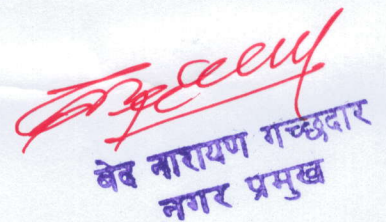 बेद नारायण गच्छदार
नगर प्रमुख